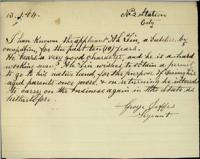 No 2 Station
City
I have known the applicant Ah Lin, a butcher by
occupation, for the past ten (10) years.
He bears a very good character, and he is a hard
working man. Ah Lin wishes to obtain a permit
to go to his native land, for the purpose of seeing his
and parents once more, & on returning he intends
to carry on the business again in this state as
heretofore.
Sergeant